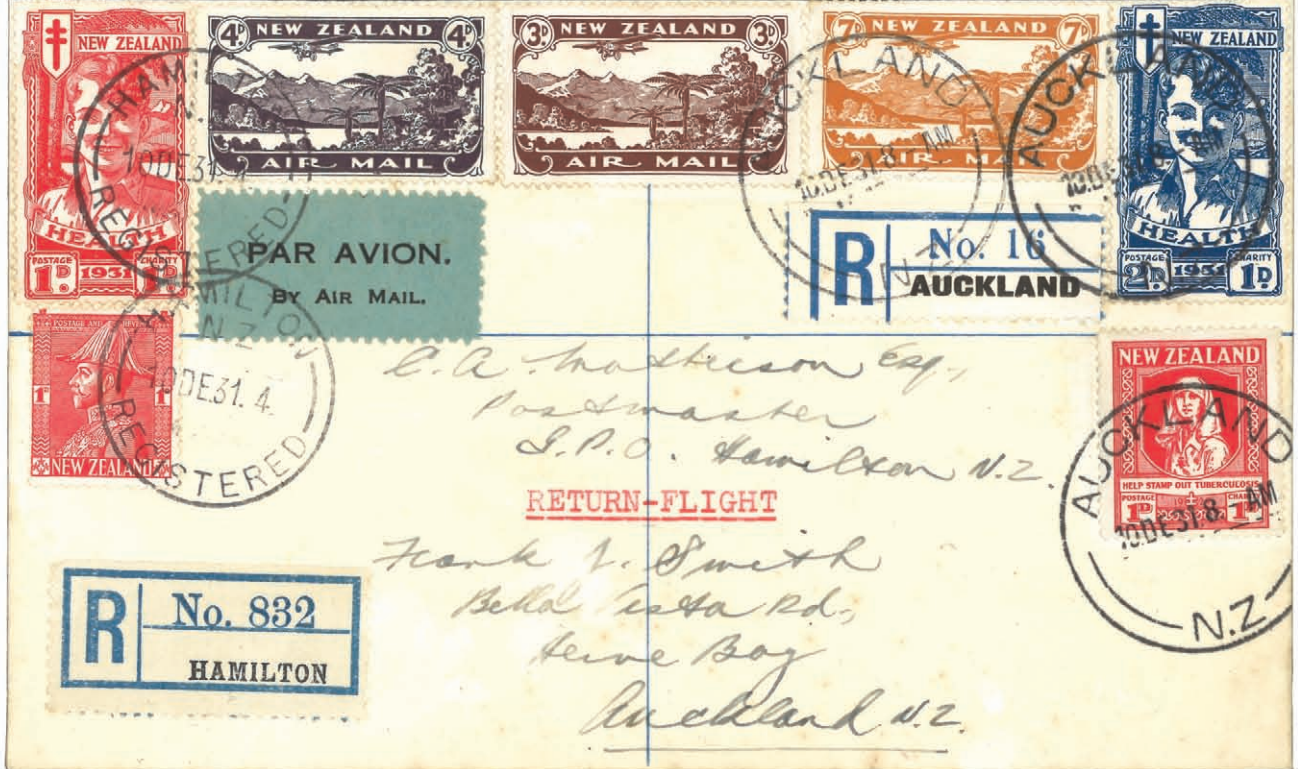 NEW ZEALAND
HEALTH
POSTAGE CHARITY
1D. 1931 1D.
4D NEW ZEALAND 4D
AIR MAIL
3D NEW ZEALAND 3D
AIR MAIL
7D NEW ZEALAND 7D
AIR MAIL
NEW ZEALAND
HEALTH
POSTAGE CHARITY
2D. 1931 1D.
HAMILTON
N.Z
10DE31.4
REGISTERED
AUCKLAND
10.DE.31.8 AM
N.Z
AUCKLAND
10.DE.31.8 AM
PAR AVION.
BY AIR MAIL.
R No. 16
AUCKLAND
POSTAGE AND REVENUE
1D 1D
NEW ZEALAND
HAMILTON
N.Z
10DE31.4.
REGISTERED
NEW ZEALAND
HELP STAMP OUT TUBERCULOSIS
POSTAGE CHARITY
1D 1D
AUCKLAND
10.DE.31.8 AM
N.Z
C. A. Esq.,
Postmaster
G.P.O. Hamilton N.Z.
RETURN-FLIGHT
Frank J. Smith
Bella Vista Rd,
Herne Bay
Auckland N.Z.
R No. 832
HAMILTON